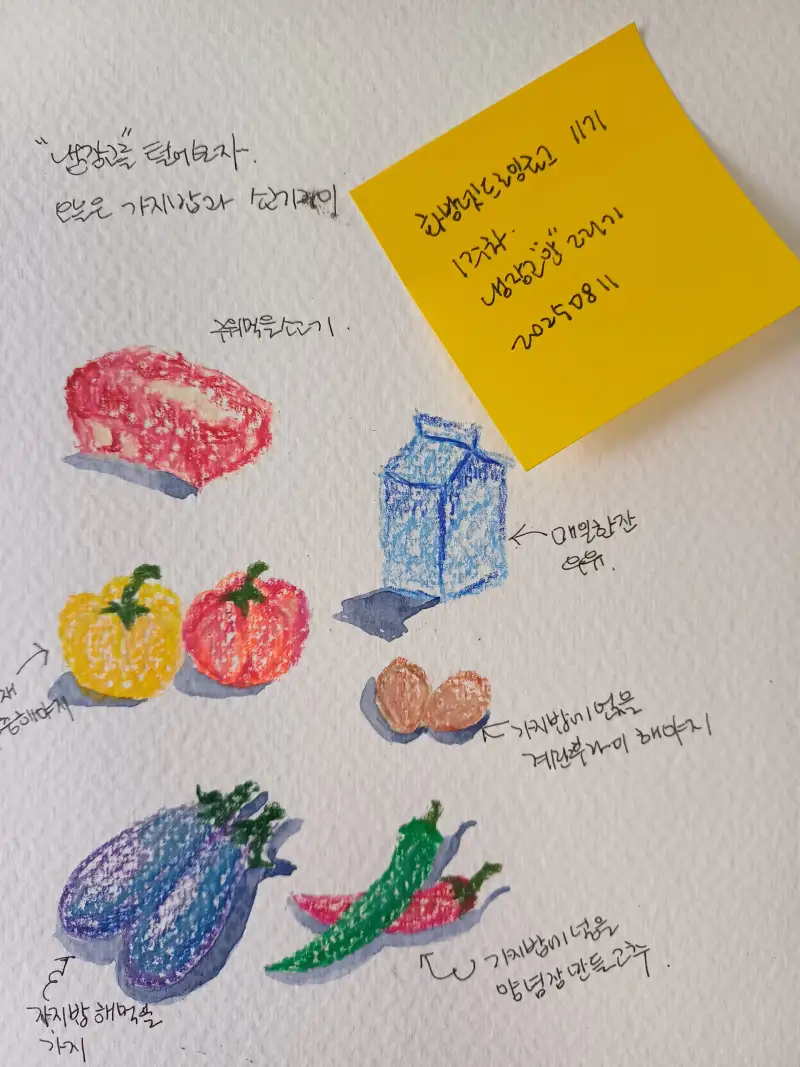 "냉장고를" 털어보자.
오늘은 가지밥과 소고기구이
11기
1주차.
냉장고"앞" 그리기
20250811
구워먹을 소고기.
매일한잔
우유.
가지밥에 얹을
계란후라이 해야지
가지밥에 넣을
양념장 만들 고추.
가지밥 해먹을
가지